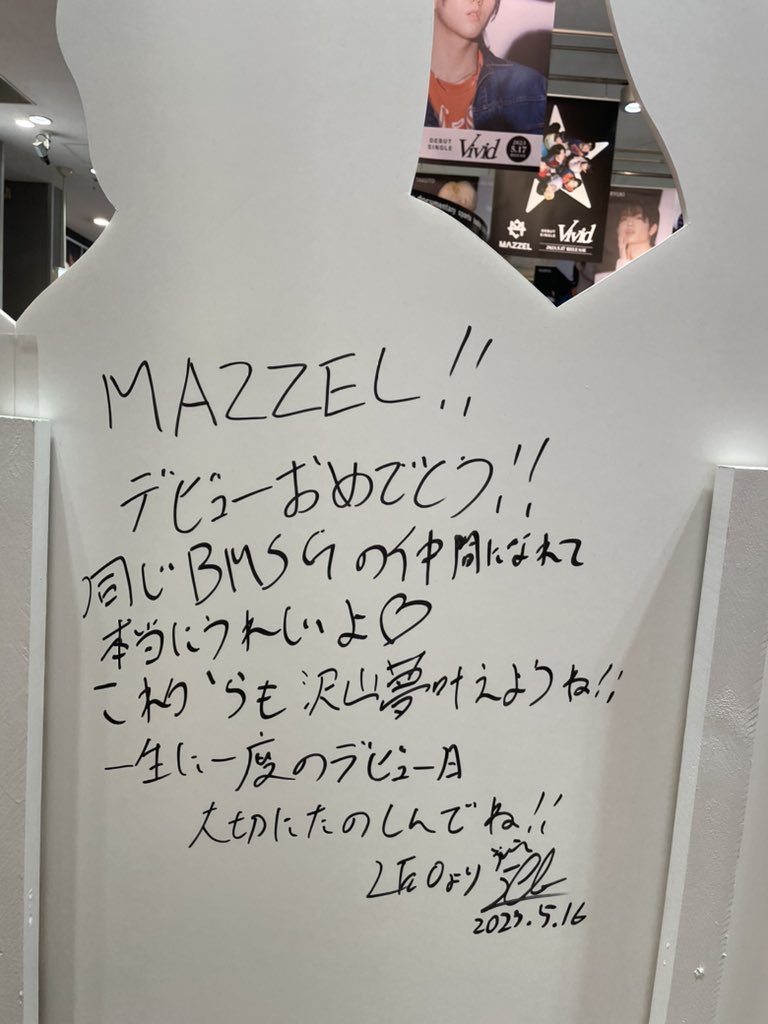 DEBUT
SINGLE
Vivid
2023
5.17
MAZZEL
DEBUT
SINGLE
Vivid
MAZZEL!!
デビューおめでとう!!
同じBMSGの仲間になれて
本当にうれしいよ♡
これからも沢山夢叶えようね!!
一生に一度のデビュー日
大切にたのしんでね!!
LEOより
2023.5.16